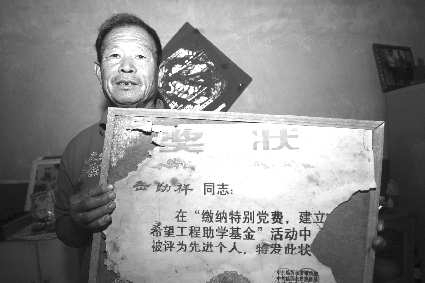 奖 状
祥 同志：
在“缴纳特别党费，建立
希望工程助学基金”活动中
被评为先进个人，特发此状